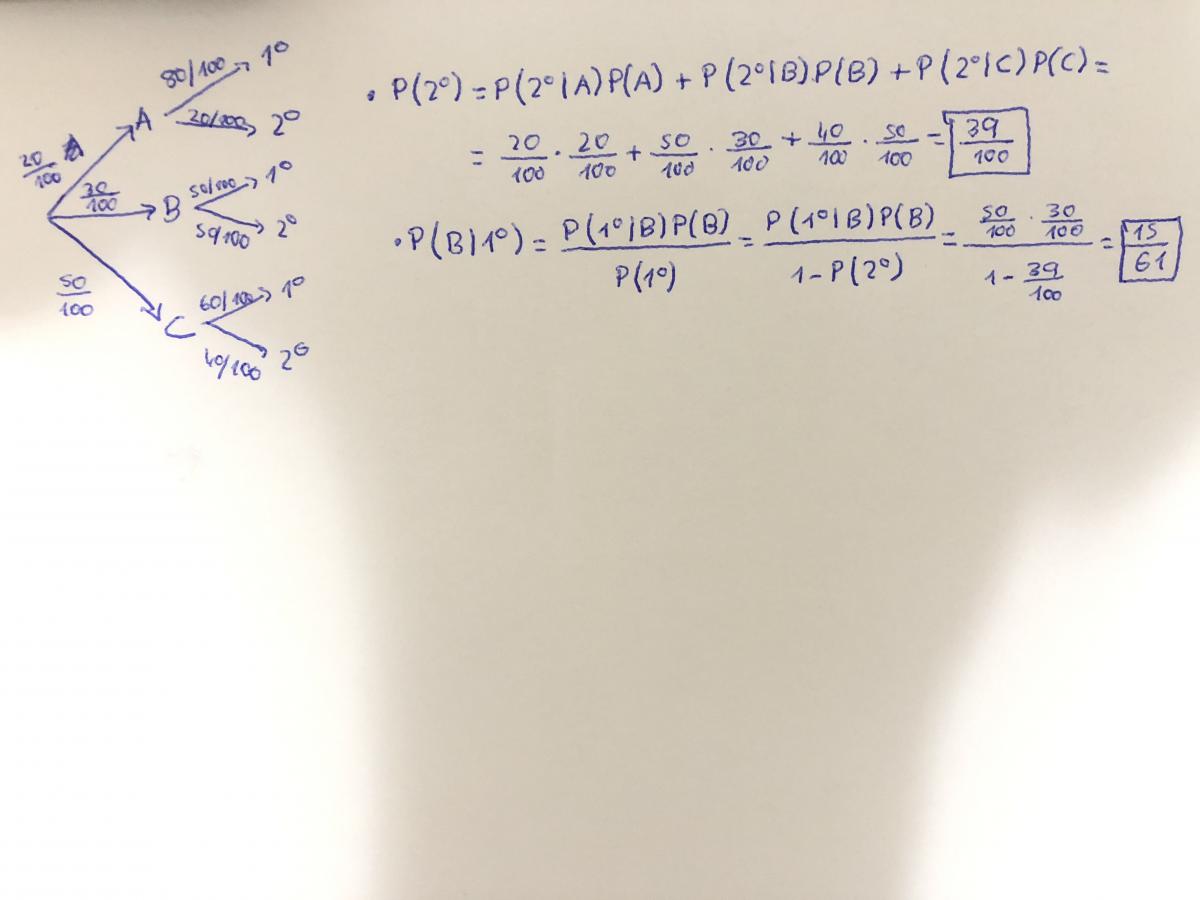 80/100 1º
A
20/100 2º
20/100
30/100 B 50/100 1º
50/100 2º
50/100
C 60/100 1º
40/100 2º
• P(2º) = P(2º|A)P(A) + P(2º|B)P(B) + P(2º|C)P(C) =
= 20/100 · 20/100 + 50/100 · 30/100 + 40/100 · 50/100 = 39/100
• P(B|1º) = P(1º|B)P(B)/P(1º) = P(1º|B)P(B)/1-P(2º) = 50/100 · 30/100/1-39/100 = 15/61